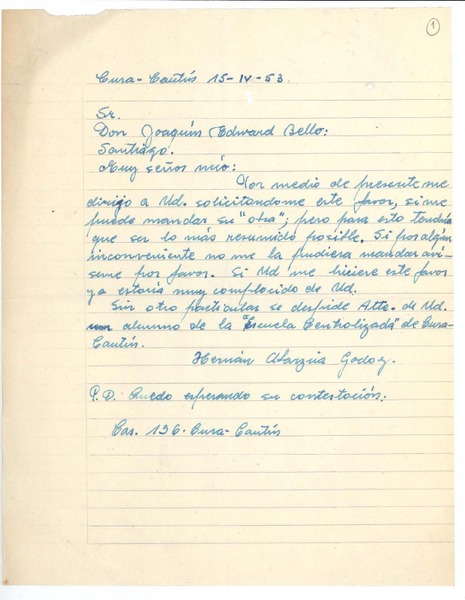 1
Cura-Cautín 15-IV-53.
Sr.
Don Joaquín Edward Bello:
Santiago.
Muy señor mío:
Por medio de presente me
dirijo a Ud. solicitandome este favor, si me
puede mandar su "obra"; pero para esto tendría
que ser lo más resumido posible. Si por algún
inconveniente no me la pudiera mandar aví-
seme por favor. Si Ud me hiciere este favor
yo estaría muy complacido de Ud.
Sin otro particular se despide Atto. de Ud.
un alumno de la "Escuela Centralizada" de Cura-
Cautín.
Hernán Abarzúa Godoy.
P.D. Quedo esperando su contestación.
Cas. 136. Cura-Cautín